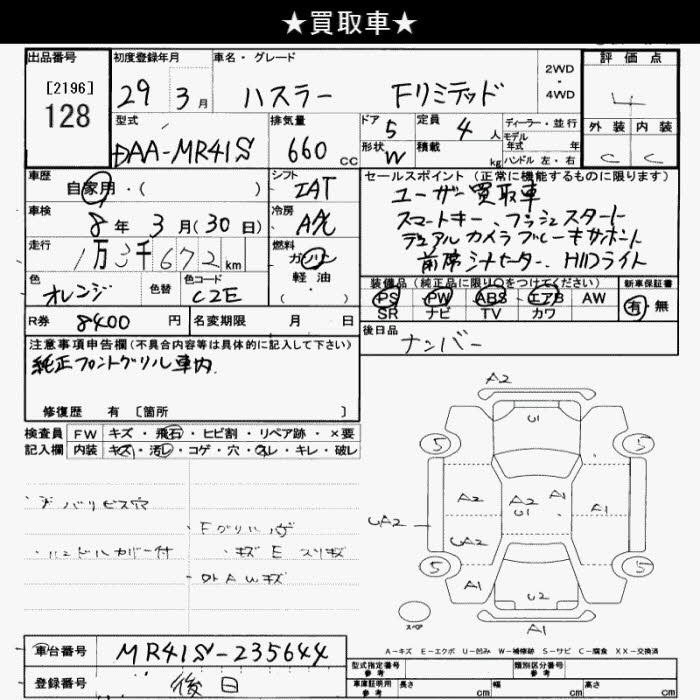 ★買取車★
出品番号
[2196]
128
初度登録年月
29年 3月
車名・グレード
ハスラー Fリミテッド
2WD
・
4WD
評価点
4
外装 内装
C C
型式
DAA-MR41S
排気量
660 CC
ドア 5
形状 W
定員 4 人
積載 kg
ディーラー・並行
モデル
年式 年
ハンドル 左・右
車歴
自家用・( )
シフト
IAT
セールスポイント (正常に機能するものに限ります)
ユーザー買取車
スマートキー、プッシュスタート
デュアルカメラブレーキサポート
前席シートヒーター、HIDライト
車検
8年 3月(30日)
冷房
走行
1万3千672km
燃料
ガソリン
軽油
( )
色
オレンジ
色替
色コード
CZE
装備品(純正品に限り○をつけてください)
PS PW ABS エアB AW
SR ナビ TV カワ
新車保証書
有・無
R券 8400 円
名変期限 月 日
後日品
ナンバー
注意事項申告欄(不具合内容等は具体的に記入して下さい)
純正フロントグリル車内.
修復歴 有 〔箇所 〕
検査員 FW キズ・飛石・ヒビ割・リペア跡・×要
記入欄 内装 キズ・汚レ・コゲ・穴・スレ・キレ・破レ
ビス穴
・ハンドルカバー付
・Fグリルｷｽﾞ
A2
U1
5 5
A2 A2 A1 A1
U1
UA2
UA2
5 5
A1
U2
スペア
A1
A-キズ E-エクボ U-凹み W-補修跡 S-サビ C-腐食 XX-交換済
車台番号 MR41S-235644
登録番号 後日
型式指定番号
参考
類別区分番号
参考
車庫証明用
参考
長さ cm 幅 cm 高さ cm